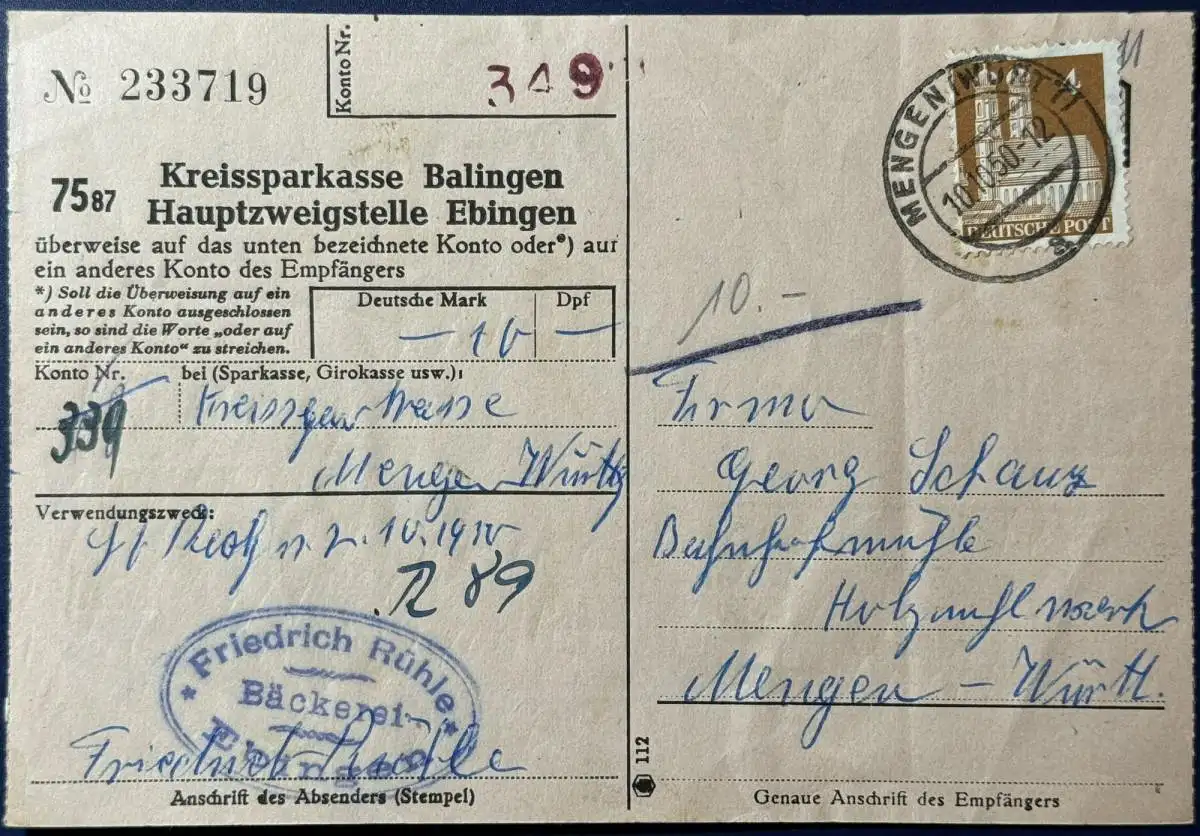 № 233719
Konto Nr.
349
7587
Kreissparkasse Balingen
Hauptzweigstelle Ebingen
überweise auf das unten bezeichnete Konto oder*) auf
ein anderes Konto des Empfängers
*) Soll die Überweisung auf ein
anderes Konto ausgeschlossen
sein, so sind die Worte „oder auf
ein anderes Konto" zu streichen.
Deutsche Mark
Dpf
— 10 —
Konto Nr.
bei (Sparkasse, Girokasse usw.):
339
Kreissparkasse
Mengen Württg
Verwendungszweck:
10.1950
R 89
* Friedrich Rühle *
Bäckerei
Ebingen
Friedrich Rühle
Anschrift des Absenders (Stempel)
MENGEN (WÜRTT)
10.10.50-12
a
4
DEUTSCHE POST
10.-
Firma
Georg Schanz
Bahnhofmühle
Mengen - Württ.
112
Genaue Anschrift des Empfängers